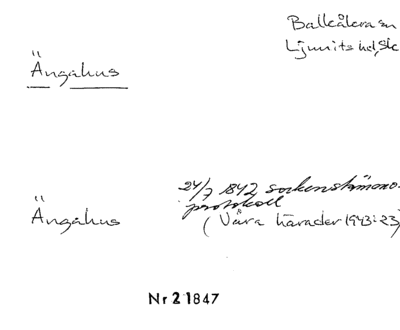 Balkåkra sn
Ljunits hd, Sk
Ängahus
24/7 1842 sockenstämmo-
protokoll
Ängahus
(Våra härader 1943:23)
Nr 21847